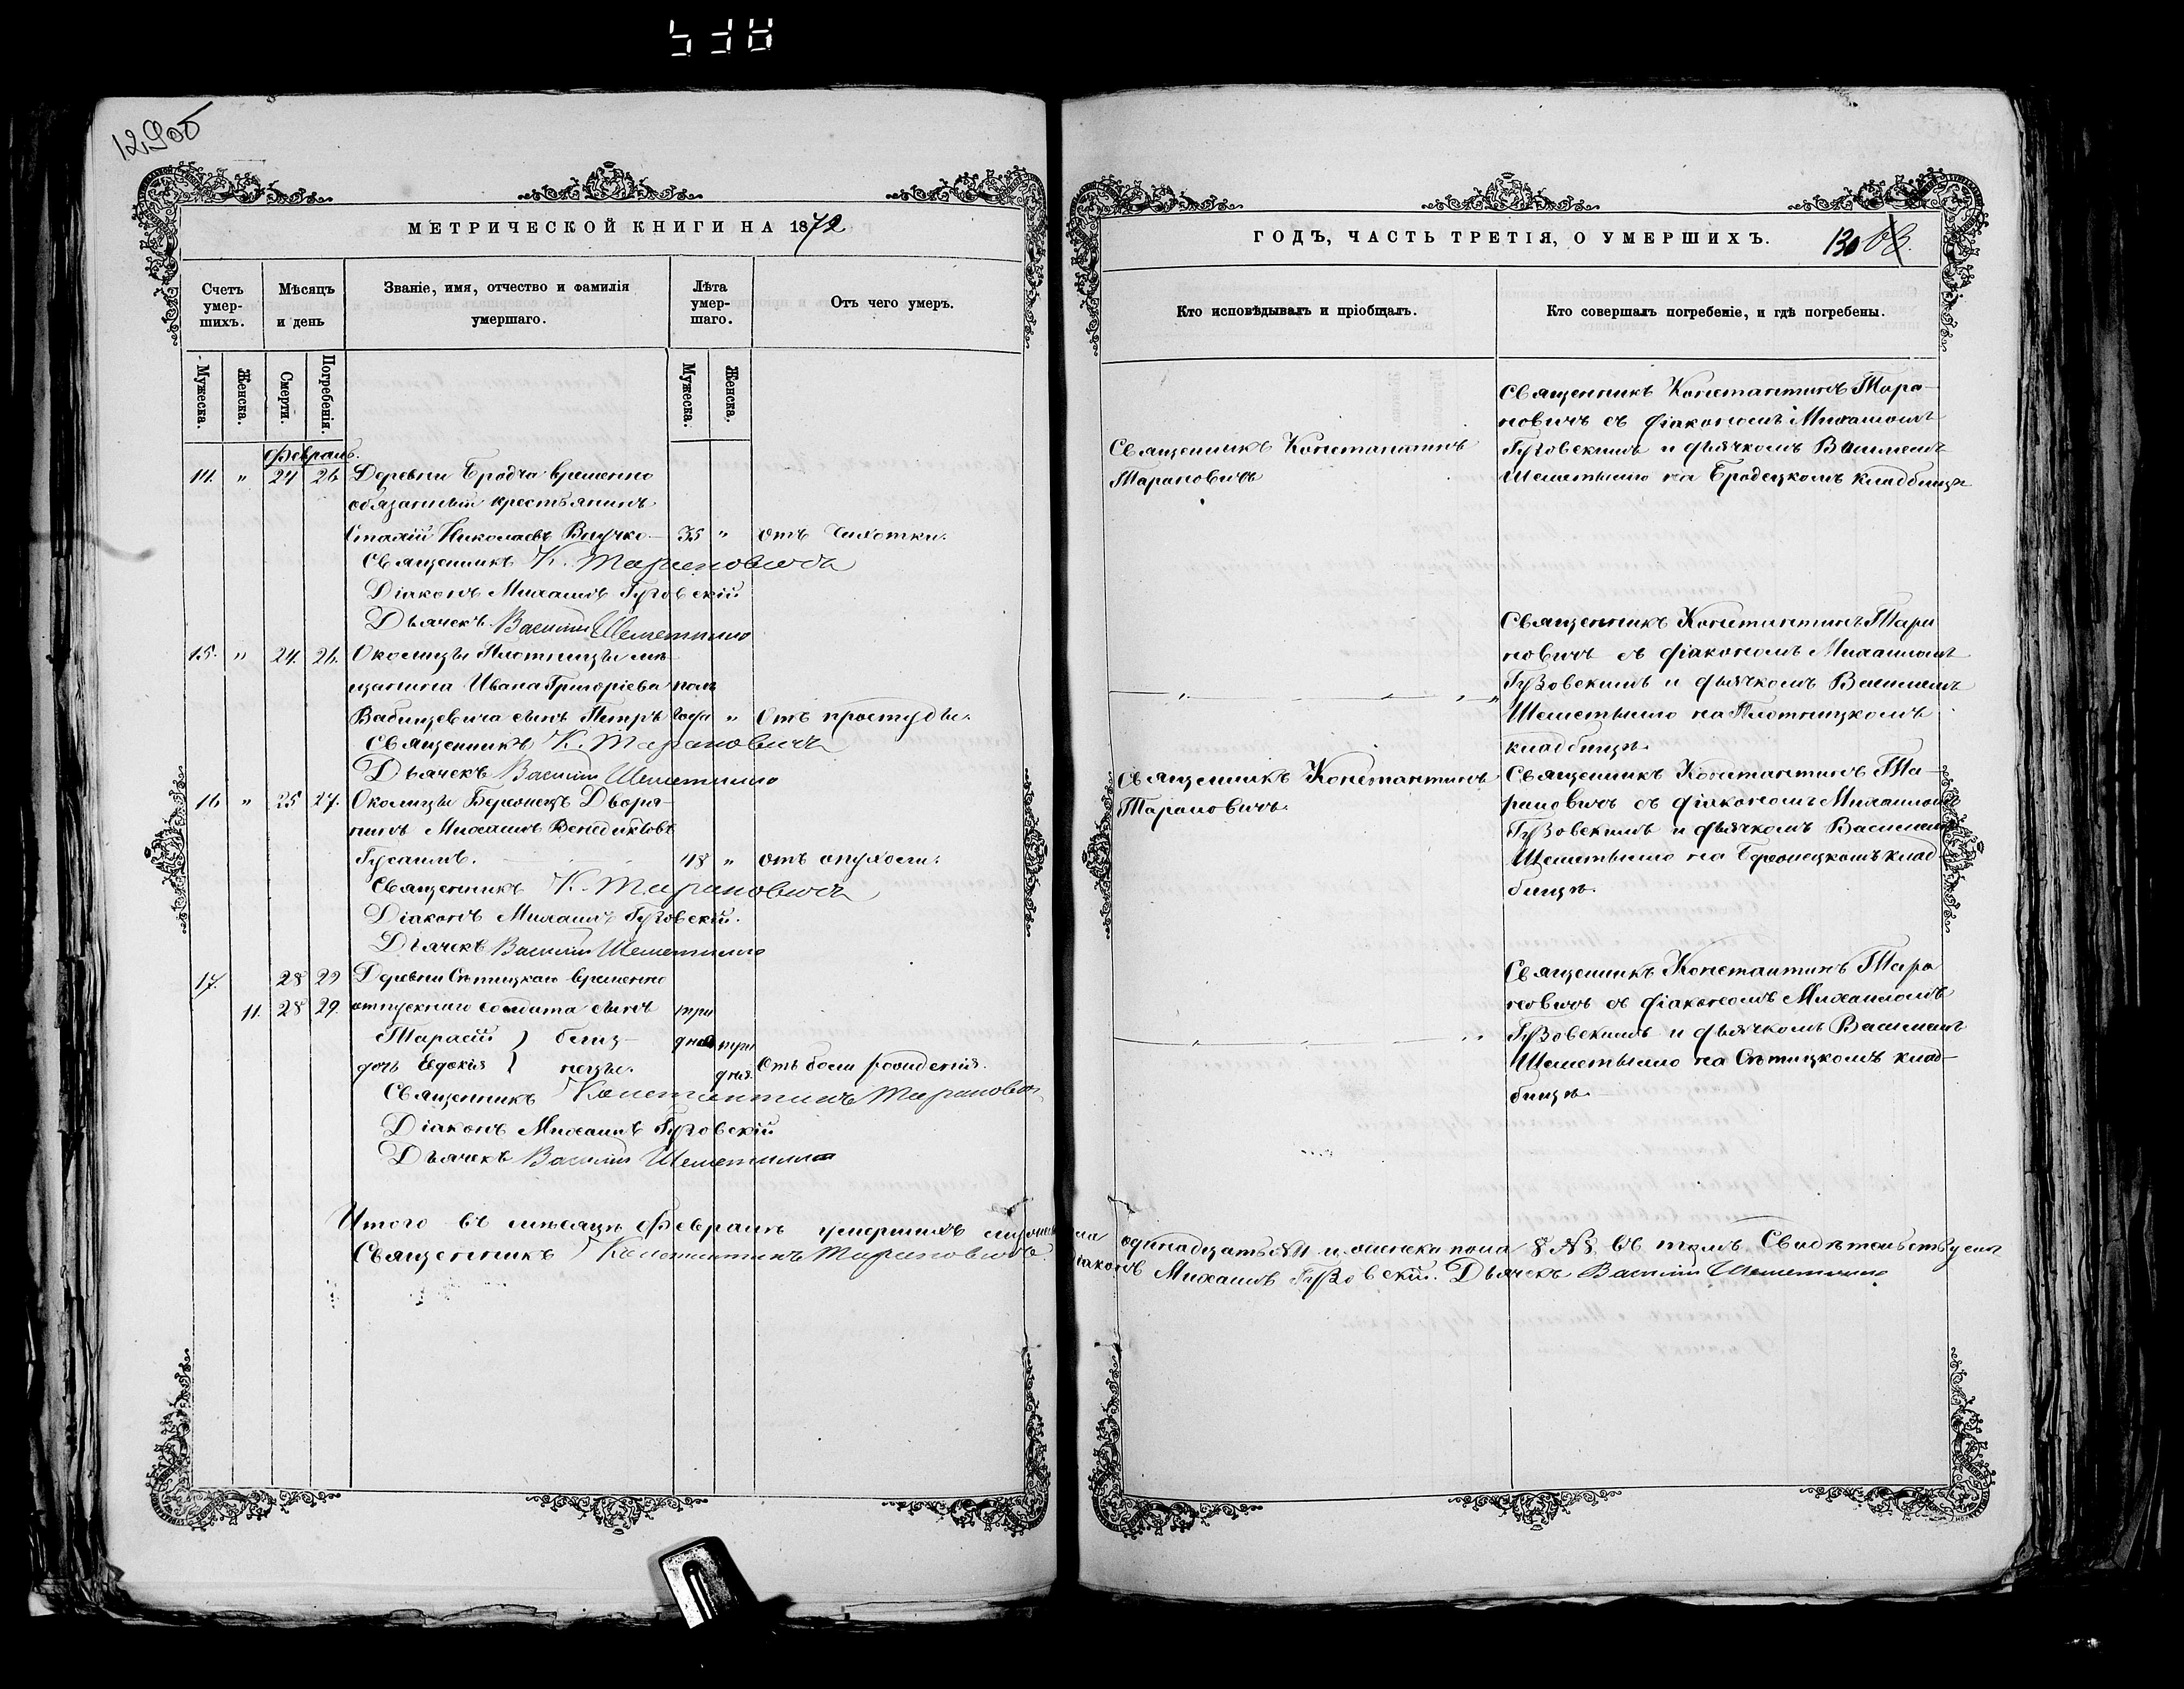 129об
МЕТРИЧЕСКОЙ КНИГИ НА 1872
Счетъ умер-шихъ.
Мѣсяцъ и день
Званіе, имя, отчество и фамилія умершаго.
Лѣта умер-шаго.
Отъ чего умеръ.
Мужеска.
Женска.
Смерти.
Погребенія.
Мужеска.
Женска.
Февраль.
14. " 24 26 Деревни Бродча временно
обязанный крестьянинъ
Николаевъ 35 " отъ чахотки.
Священникъ К. Тарановичъ
Діаконъ Михаилъ Гузовскій
Дьячекъ Василій Шеметилло
15. " 24. 26. Околицы Плотницы мѣ-
щанина Ивана Григоріева пол
Бабицевича сынъ Петръ года " Отъ простуды.
Священникъ К. Тарановичъ
Дьячекъ Василій Шеметилло
16 " 25 27. Околицы Дворя-
нинъ Михаилъ Венедиктовъ
48 " отъ опухоли.
Священникъ К. Тарановичъ
Діаконъ Михаилъ Гузовскій.
Дьячекъ Василій Шеметилло
17. 28 29 Деревни временно
11. 28 29. отпускнаго солдата сынъ три
Тарасій } близ- дня три
дочь Евдокія } нецы. дня. Отъ боли рожденія.
Священникъ Константинъ Тарановичъ
Діаконъ Михаилъ Гузовскій
Дьячекъ Василій Шеметилло
Итого въ мѣсяцѣ Февралѣ умершихъ мужеска
Священникъ Константинъ Тарановичъ
ГОДЪ, ЧАСТЬ ТРЕТІЯ, О УМЕРШИХЪ.
130
Кто исповѣдывалъ и пріобщалъ.
Кто совершалъ погребеніе, и гдѣ погребены.
Священникъ Константинъ
Тарановичъ
Священникъ Константинъ Тара-
новичъ съ діакономъ Михаиломъ
Гузовскимъ и дьячкомъ Василіемъ
Шеметилло на Бродецкомъ кладбищѣ
Священникъ Константинъ Тара
новичъ съ діакономъ Михаиломъ
Гузовскимъ и дьячкомъ Василіемъ
Шеметилло на Плотницкомъ
кладбищѣ.
Священникъ Константинъ
Тарановичъ.
Священникъ Константинъ Та-
рановичъ съ діакономъ Михаиломъ
Гузовскимъ и дьячкомъ Василіемъ
Шеметилло на клад-
бищѣ.
Священникъ Константинъ Тара
новичъ съ діакономъ Михаиломъ
Гузовскимъ и дьячкомъ Василіемъ
Шеметилло на клад-
бищѣ.
пола одинадцать №11 и женска пола 8 №8. въ томъ Свидѣтельствуемъ
Діаконъ Михаилъ Гузовскій. Дьячекъ Василій Шеметилло